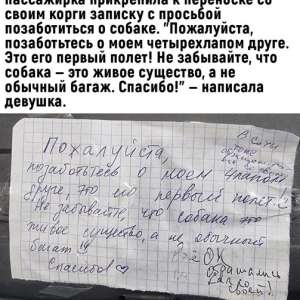 пассажирка прикрепила к переноске со
своим корги записку с просьбой
позаботиться о собаке. "Пожалуйста,
позаботьтесь о моем четырехлапом друге.
Это его первый полет! Не забывайте, что
собака – это живое существо, а не
обычный багаж. Спасибо!" – написала
девушка.
Пожалуйста,
позаботьтесь о моем 4лапом
друге, это его первый полет!
Не забывайте, что собака это
живое существо, а не обычный
багаж!!
Спасибо! ♡
ОК
обращались
как со
своей!